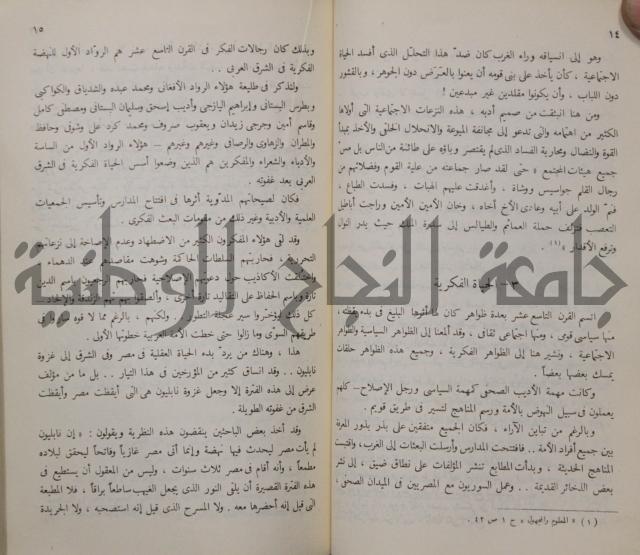 ١٤
وهو إلى انسياقه وراء الغرب كان ضد هذا التحلل الذى أفسد الحياة
الاجتماعية ، كأن يأخذ على بنى قومه أن يعنوا بالعرض دون الجوهر ، وبالقشور
دون اللباب ، وأن يكونوا مقلدين غير مبدعين !
ومن هنا انبثقت من صميم أدبه ، هذه النزعات الاجتماعية التى أولاها
الكثير من اهتمامه والتى تدعو إلى مجانفة الميوعة والانحلال الخلقى والأخذ بمبدأ
القوة والنضال ومحاربة الفساد الذى لم يقتصر وباؤه على طائفة من الناس بل
جميع هيئات المجتمع « حتى لقد صار جماعته من علية القوم وفضلائهم من
رجال القلم جواسيس ووشاة ، وأغدقت عليهم الهبات ، وفسدت الطباع ،
الولد على أبيه وعادى الأخ أخاه ، وخان الأمين الأمين وراجت أباطيل
التعصب حملة العمائم والطيالس إلى الملك حيث يدر
وترفع الأقدار » (١) .
٣ – الحياة الفكرية
اتسم القرن التاسع عشر بعدة ظواهر كان أثرها البليغ فى بدء يقظته ،
منها سياسى قوى ، ومنها اجتماعى ثقافى ، وقد ألمعنا إلى الظواهر السياسية والظواهر
الاجتماعية ، ونشير هنا إلى الظواهر الفكرية ، وجميع هذه الظواهر حلقات
يمسك بعضها بعضاً .
وكانت مهمة الأديب الصحفى كمهمة السياسى ورجل الإصلاح – كلهم
يعملون فى سبيل النهوض بالأمة ورسم المناهج لتسير فى طريق قويم .
وبالرغم من تباين الآراء ، فكان الجميع متفقين على بذر بذور المعرفة
بين جميع أفراد الأمة .. فافتتحت المدارس وأرسلت البعثات إلى الغرب، واقتبست
المناهج الحديثة ، وبدأت المطابع تنشر المؤلفات على نطاق ضيق ، إلى نشر
بعض الذخائر القديمة .. وعمل السوريون مع المصريين فى الميدان الصحفى ،
(١) « المعلوم والمجهول » ج ١ ص ٤٢ .
١٥
وبذلك كان رجالات الفكر فى القرن التاسع عشر هم الرواد الأول للنهضة
الفكرية فى الشرق العربى . .
ولنذكر فى طليعة هؤلاء الرواد الأفغانى ومحمد عبده والشدياق والكواكبى
وبطرس البستانى وإبراهيم اليازجى وأديب إسحق وسليمان البستانى ومصطفى كامل
وقاسم أمين وجرجى زيدان ويعقوب صروف ومحمد كرد على وشوقى وحافظ
والمطران والزهاوى والرصافى وغيرهم وغيرهم – هؤلاء الرواد الأول من الساسة
والأدباء والشعراء والمفكرين هم الذين وضعوا أسس الحياة الفكرية فى الشرق
العربى بعد غفوته .
فكان لصيحاتهم المدوّية أثرها فى افتتاح المدارس وتأسيس الجمعيات
العلمية والأدبية وغير ذلك من مقومات البعث الفكرى .
وقد لقى هؤلاء المفكرون الكثير من الاضطهاد وعدم الإصاخة إلى نزعاتهم
التحررية ، فحاربتهم السلطات الحاكة وشوهت مقاصدهم عند الدهماء ،
الأكاذيب حول فحاربهم الرجعيون باسم الدين
تارة وباسم الحفاظ على التقاليد تارة أخرى ، وألصقوا بهم الزندقة والإلحاد .
كل ذلك ليؤخروا سير عجلة التطور . ولكنهم ، بالرغم مما لاقوه ساروا فى
طريقهم السوى وما زالوا حتى خطت الأمة العربية خطوتها الأولى .
هذا ، وهناك من يردّ بدء الحياة العقلية فى مصر وفى الشرق إلى غزوة
نابليون . . وقد انساق كثير من المؤرخين فى هذا التيار .. بل ما من مؤلف
عرض إلى هذه الفترة إلا وجعل غزوة نابليون هى التى أيقظت مصر وأيقظت
الشرق من غفوته الطويلة .
وقد أخذ بعض الباحثين ينقضون هذه النظرية ويقولون : « إن نابليون
لم يأت مصر ليحدث فيها نهضة وإنما أتى مصر غازياً وفاتحاً ليحقق لبلاده
مطمعاً ، وأنه أقام فى مصر ثلاث سنوات ، وليس من المعقول أن يستطيع فى
هذه الفترة القصيرة أن يلقى النور الذى يجعل الغيهب ساطعاً براقاً ، فلا المطبعة
التى قيل إنه أحضرها معه . ولا المسرح الذى قيل إنه استصحبه ، ولا الجريدة
جامعة النجاح الوطنية